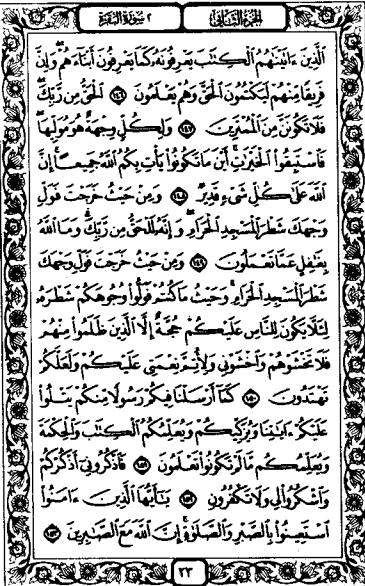 الجزء الثانى
٢ سورة البقرة
الَّذِينَ ءَاتَيْنَٰهُمُ الْكِتَٰبَ يَعْرِفُونَهُۥ كَمَا يَعْرِفُونَ أَبْنَآءَهُمْ وَإِنَّ
فَرِيقًا مِّنْهُمْ لَيَكْتُمُونَ الْحَقَّ وَهُمْ يَعْلَمُونَ ١٤٦ الْحَقُّ مِن رَّبِّكَ
فَلَا تَكُونَنَّ مِنَ الْمُمْتَرِينَ ١٤٧ وَلِكُلٍّ وِجْهَةٌ هُوَ مُوَلِّيهَا
فَاسْتَبِقُوا الْخَيْرَٰتِ أَيْنَ مَا تَكُونُوا يَأْتِ بِكُمُ اللَّهُ جَمِيعًا إِنَّ
اللَّهَ عَلَىٰ كُلِّ شَىْءٍ قَدِيرٌ ١٤٨ وَمِنْ حَيْثُ خَرَجْتَ فَوَلِّ
وَجْهَكَ شَطْرَ الْمَسْجِدِ الْحَرَامِ وَإِنَّهُۥ لَلْحَقُّ مِن رَّبِّكَ وَمَا اللَّهُ
بِغَٰفِلٍ عَمَّا تَعْمَلُونَ ١٤٩ وَمِنْ حَيْثُ خَرَجْتَ فَوَلِّ وَجْهَكَ
شَطْرَ الْمَسْجِدِ الْحَرَامِ وَحَيْثُ مَا كُنتُمْ فَوَلُّوا وُجُوهَكُمْ شَطْرَهُۥ
لِئَلَّا يَكُونَ لِلنَّاسِ عَلَيْكُمْ حُجَّةٌ إِلَّا الَّذِينَ ظَلَمُوا مِنْهُمْ
فَلَا تَخْشَوْهُمْ وَاخْشَوْنِى وَلِأُتِمَّ نِعْمَتِى عَلَيْكُمْ وَلَعَلَّكُمْ
تَهْتَدُونَ ١٥٠ كَمَآ أَرْسَلْنَا فِيكُمْ رَسُولًا مِّنكُمْ يَتْلُوا
عَلَيْكُمْ ءَايَٰتِنَا وَيُزَكِّيكُمْ وَيُعَلِّمُكُمُ الْكِتَٰبَ وَالْحِكْمَةَ
وَيُعَلِّمُكُم مَّا لَمْ تَكُونُوا تَعْلَمُونَ ١٥١ فَاذْكُرُونِىٓ أَذْكُرْكُمْ
وَاشْكُرُوا لِى وَلَا تَكْفُرُونِ ١٥٢ يَٰٓأَيُّهَا الَّذِينَ ءَامَنُوا
اسْتَعِينُوا بِالصَّبْرِ وَالصَّلَوٰةِ إِنَّ اللَّهَ مَعَ الصَّٰبِرِينَ ١٥٣
٢٣